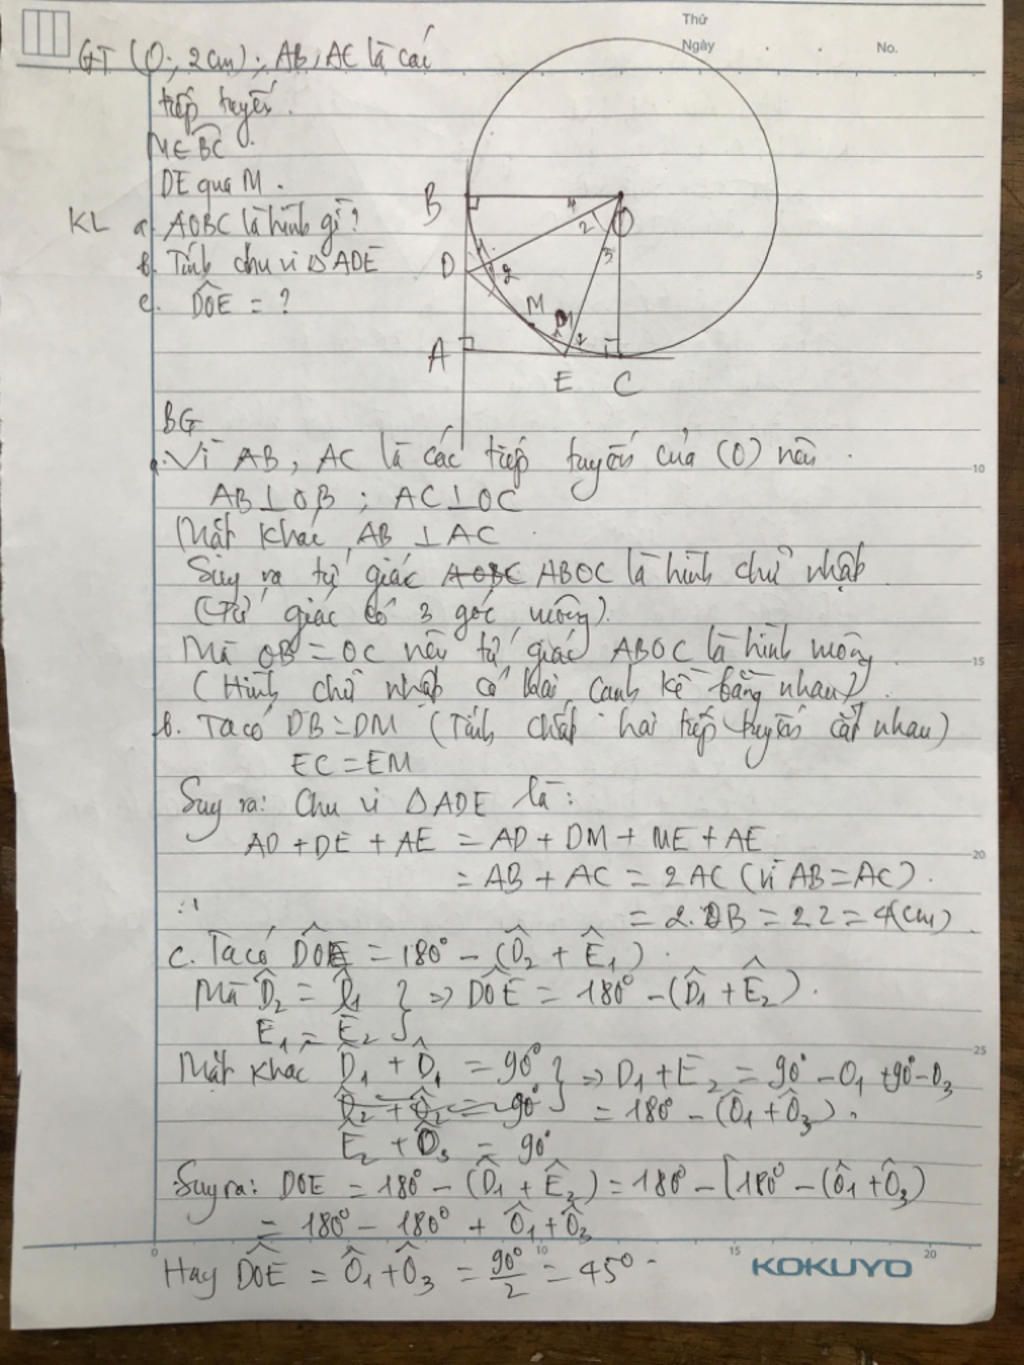 Thứ
Ngày . . No.
GT (O; 2cm); AB, AC là các
tiếp tuyến.
M ∈ BC.
DE qua M.
KL a. AOBC là hình gì?
b. Tính chu vi Δ ADE
c. DÔE = ?
B 4 2 O 3
D 1 2
M 1 2
A E C
5
BG
a. Vì AB, AC là các tiếp tuyến của (O) nên
10
AB ⊥ OB ; AC ⊥ OC
Mặt khác AB ⊥ AC
Suy ra tứ giác AOBC ABOC là hình chữ nhật
(Tứ giác có 3 góc vuông).
Mà OB = OC nên tứ giác ABOC là hình vuông
15
(Hình chữ nhật có hai cạnh kề bằng nhau).
b. Ta có DB = DM (Tính chất hai tiếp tuyến cắt nhau)
EC = EM
Suy ra: Chu vi Δ ADE là:
AD + DE + AE = AD + DM + ME + AE
20
= AB + AC = 2AC (vì AB = AC).
= 2.OB = 2.2 = 4(cm)
c. Ta có DÔE = 180° - (D̂2 + Ê1).
Mà D̂2 = D̂1 } => DÔE = 180° - (D̂1 + Ê2).
E1 = E2
25
Mặt khác D̂1 + Ô1 = 90° } => D1 + E2 = 90° - O1 + 90° - O3
D̂2 + Ô2 = 90° = 180° - (Ô1 + Ô3).
Ê2 + Ô3 = 90°
Suy ra: DOE = 180° - (D̂1 + Ê2) = 180° - [180° - (Ô1 + Ô3)
= 180° - 180° + Ô1 + Ô3
0 10 15 20
Hay DÔE = Ô1 + Ô3 = 90°/2 = 45°
KOKUYO